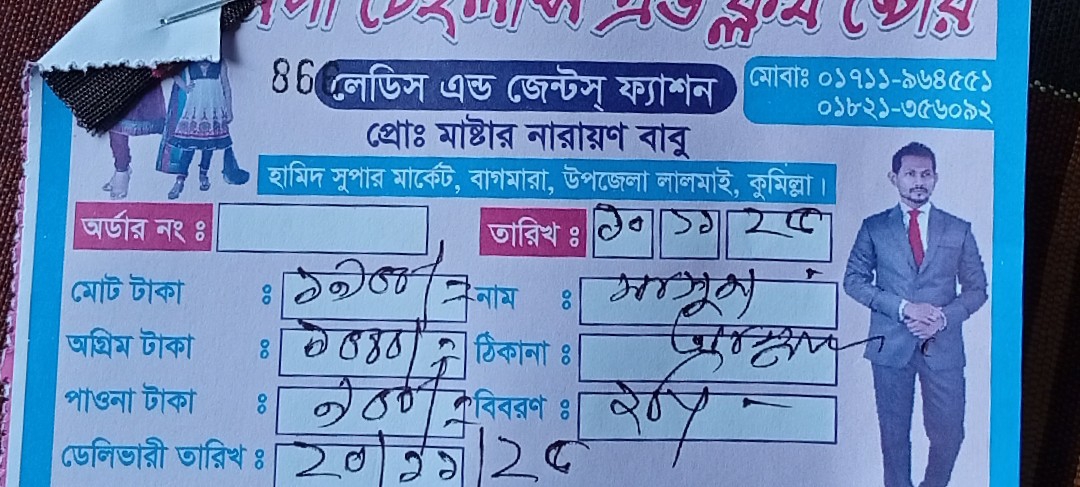 টেইলার্স এন্ড ক্লথ ষ্টোর
866
লেডিস এন্ড জেন্টস্ ফ্যাশন
মোবাঃ ০১৭১১-৯৬৪৫৫১
০১৮২১-৩৫৬০৯২
প্রোঃ মাষ্টার নারায়ণ বাবু
হামিদ সুপার মার্কেট, বাগমারা, উপজেলা লালমাই, কুমিল্লা।
অর্ডার নং ঃ
তারিখ ঃ ১০ ১১ ২৫
মোট টাকা ঃ ১৯০০/=
নাম ঃ মাসুম
অগ্রিম টাকা ঃ
ঠিকানা ঃ
পাওনা টাকা ঃ ৯০০/=
বিবরণ ঃ
ডেলিভারী তারিখ ঃ ২০/১১/২৫